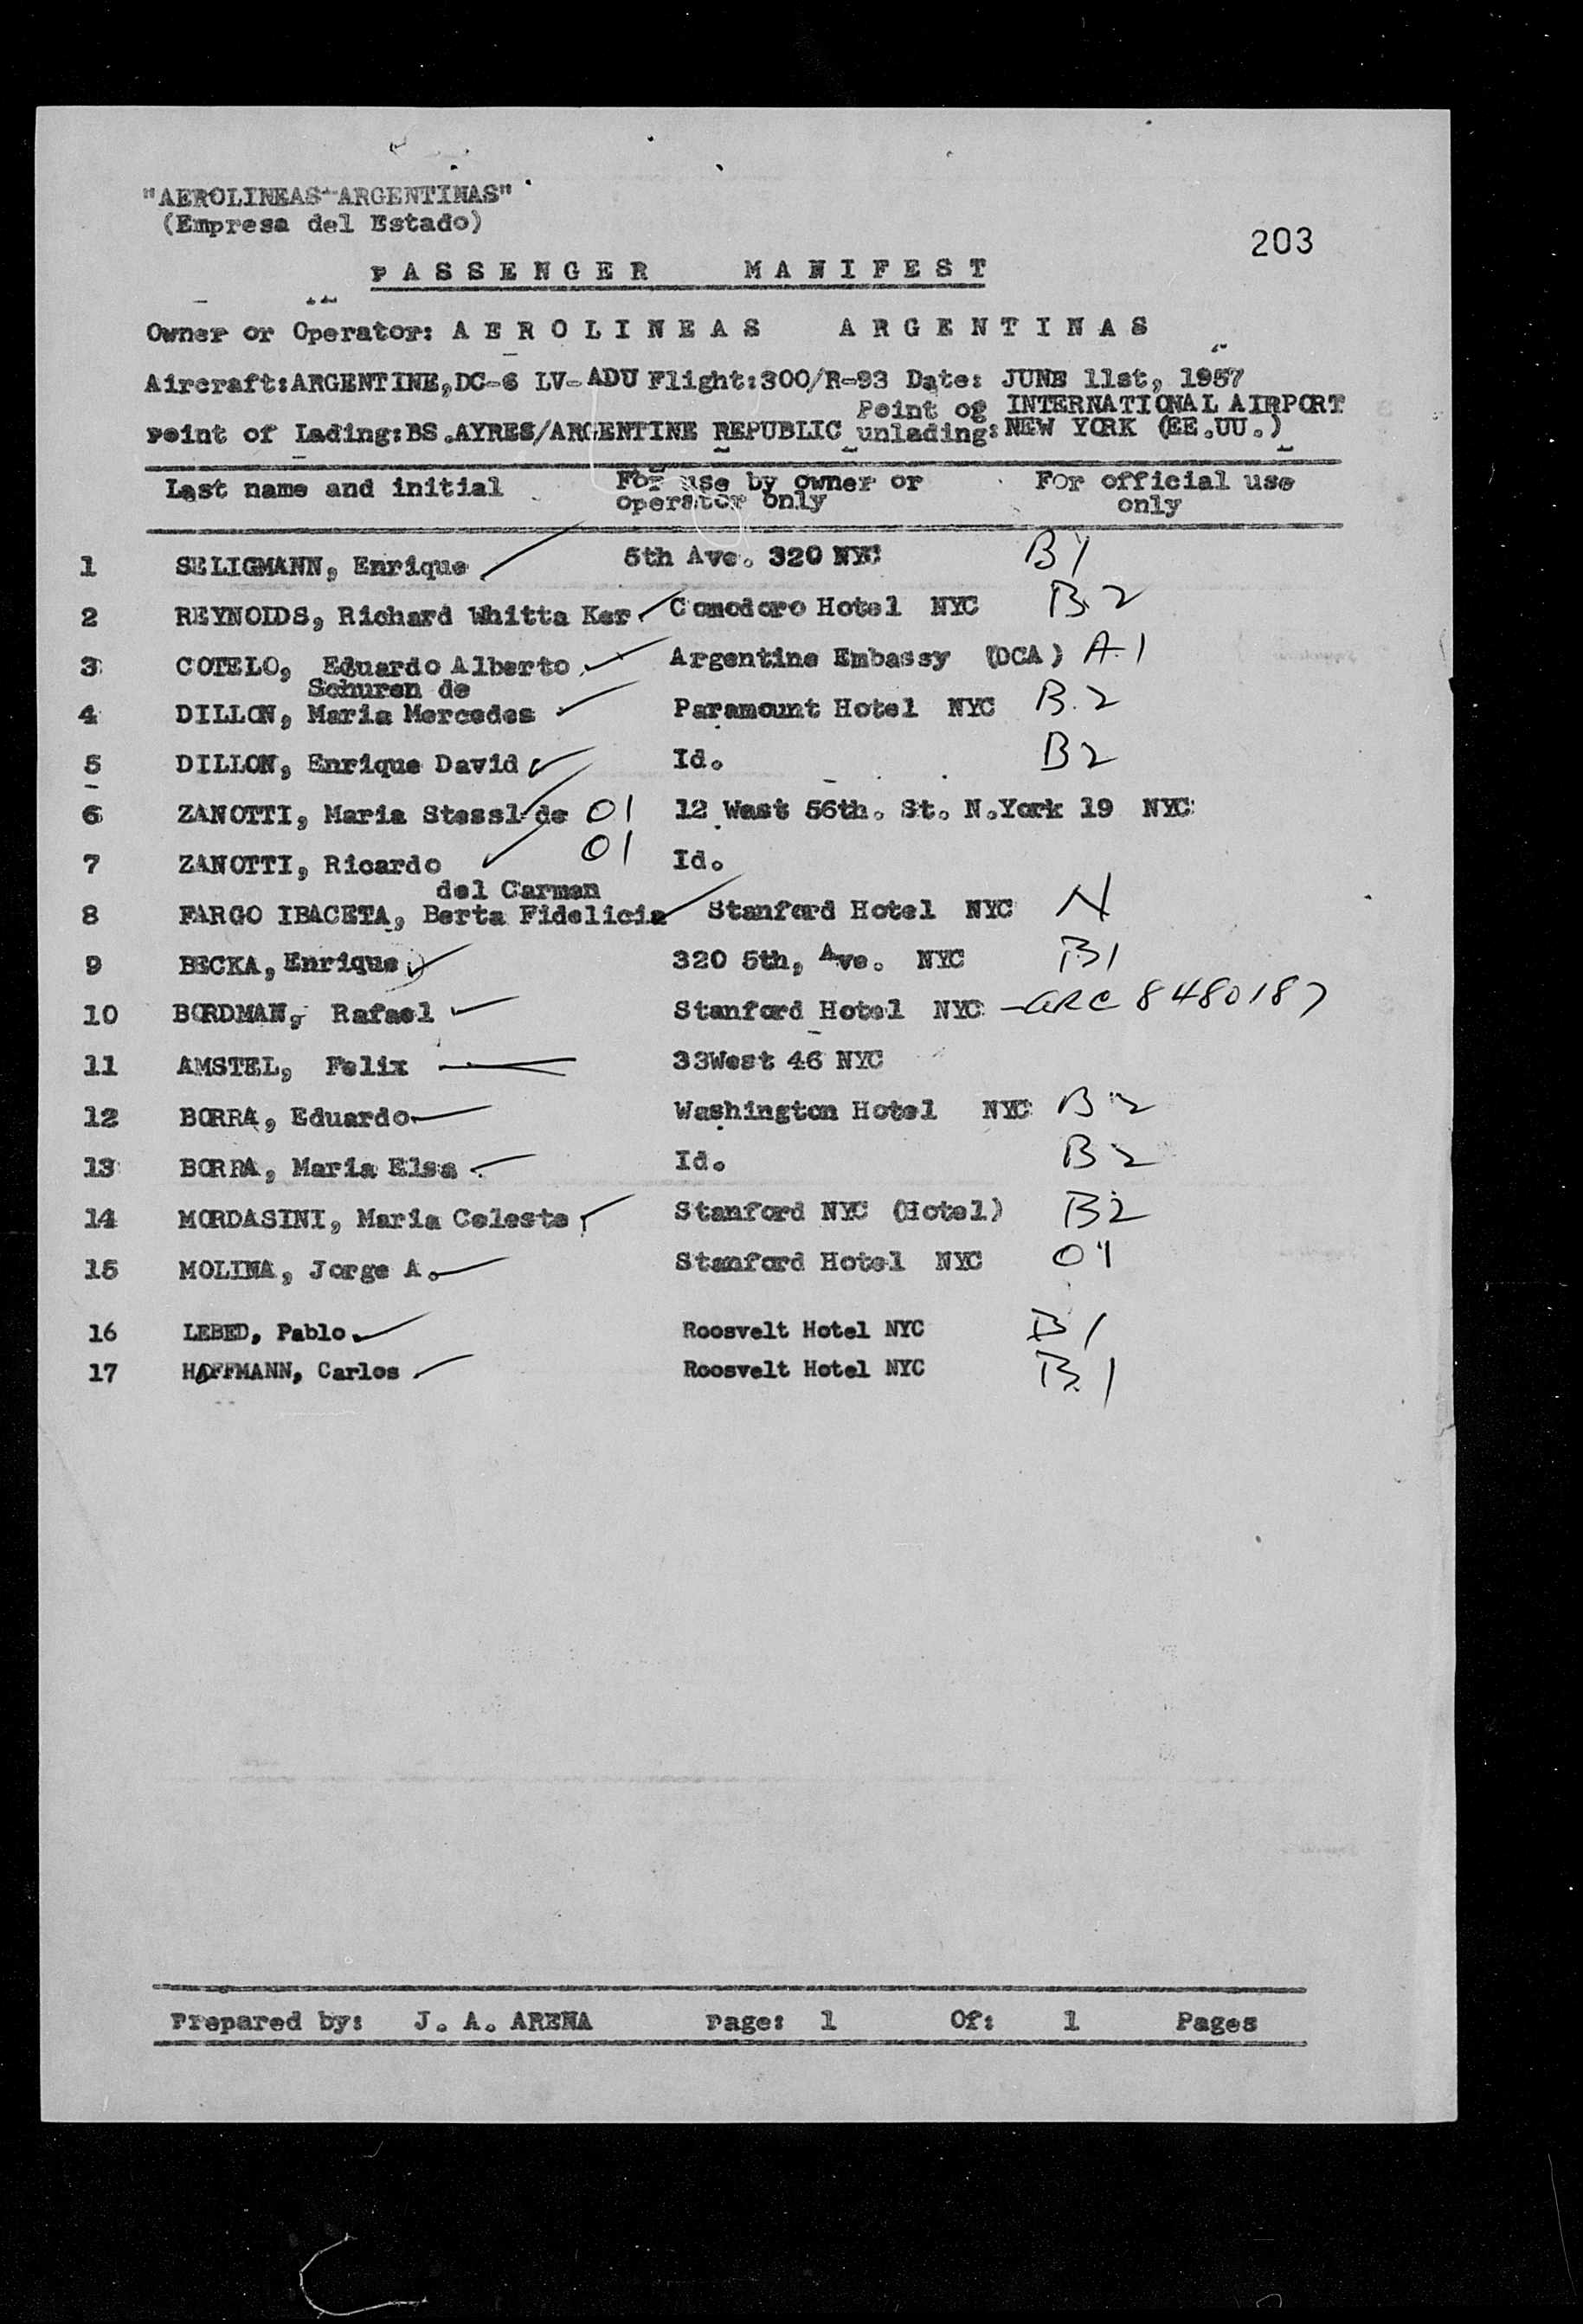 "AEROLINEAS ARGENTINAS"
(Empresa del Estado)
203
PASSENGER MANIFEST
Owner or Operator: AEROLINEAS ARGENTINAS
Aircraft:ARGENTINE,DC-6 LV-ADU Flight:300/R-93 Date: JUNE 11st, 1957
Point of Lading:BS.AYRES/ARGENTINE REPUBLIC Point og unlading: INTERNATIONAL AIRPORT NEW YORK (EE.UU.)
Last name and initial For use by owner or operator only For official use only
1 SELIGMANN, Enrique 5th Ave. 320 NYC B1
2 REYNOLDS, Richard Whitta Ker Comodoro Hotel NYC B2
3 COTELO, Eduardo Alberto Argentine Embassy (DCA) A-1
Schuren de
4 DILLON, Maria Mercedes Paramount Hotel NYC B.2
5 DILLON, Enrique David Id. B2
6 ZANOTTI, Maria Stessl de 01 12 West 56th. St. N.York 19 NYC
7 ZANOTTI, Ricardo 01 Id.
del Carmen
8 FARGO IBACETA, Berta Fidelicia Stanford Hotel NYC N
9 BECKA, Enrique 320 5th, Ave. NYC B1
10 BORDMAN, Rafael Stanford Hotel NYC - ARC 8480187
11 AMSTEL, Felix 33West 46 NYC
12 BORRA, Eduardo Washington Hotel NYC B2
13 BORRA, Maria Elsa Id. B2
14 MORDASINI, Maria Celeste Stanford NYC (Hotel) B2
15 MOLINA, Jorge A. Stanford Hotel NYC 01
16 LEBED, Pablo Roosvelt Hotel NYC B1
17 HOFFMANN, Carlos Roosvelt Hotel NYC B.1
Prepared by: J. A. ARENA Page: 1 Of: 1 Pages